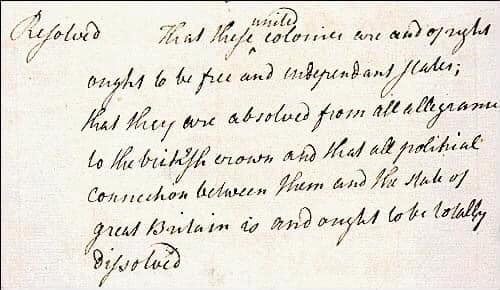 Resolved That these united colonies are and of right
ought to be free and independant states;
that they are absolved from all allegiance
to the british crown and that all political
connection between them and the state of
great Britain is and ought to be totally
dissolved